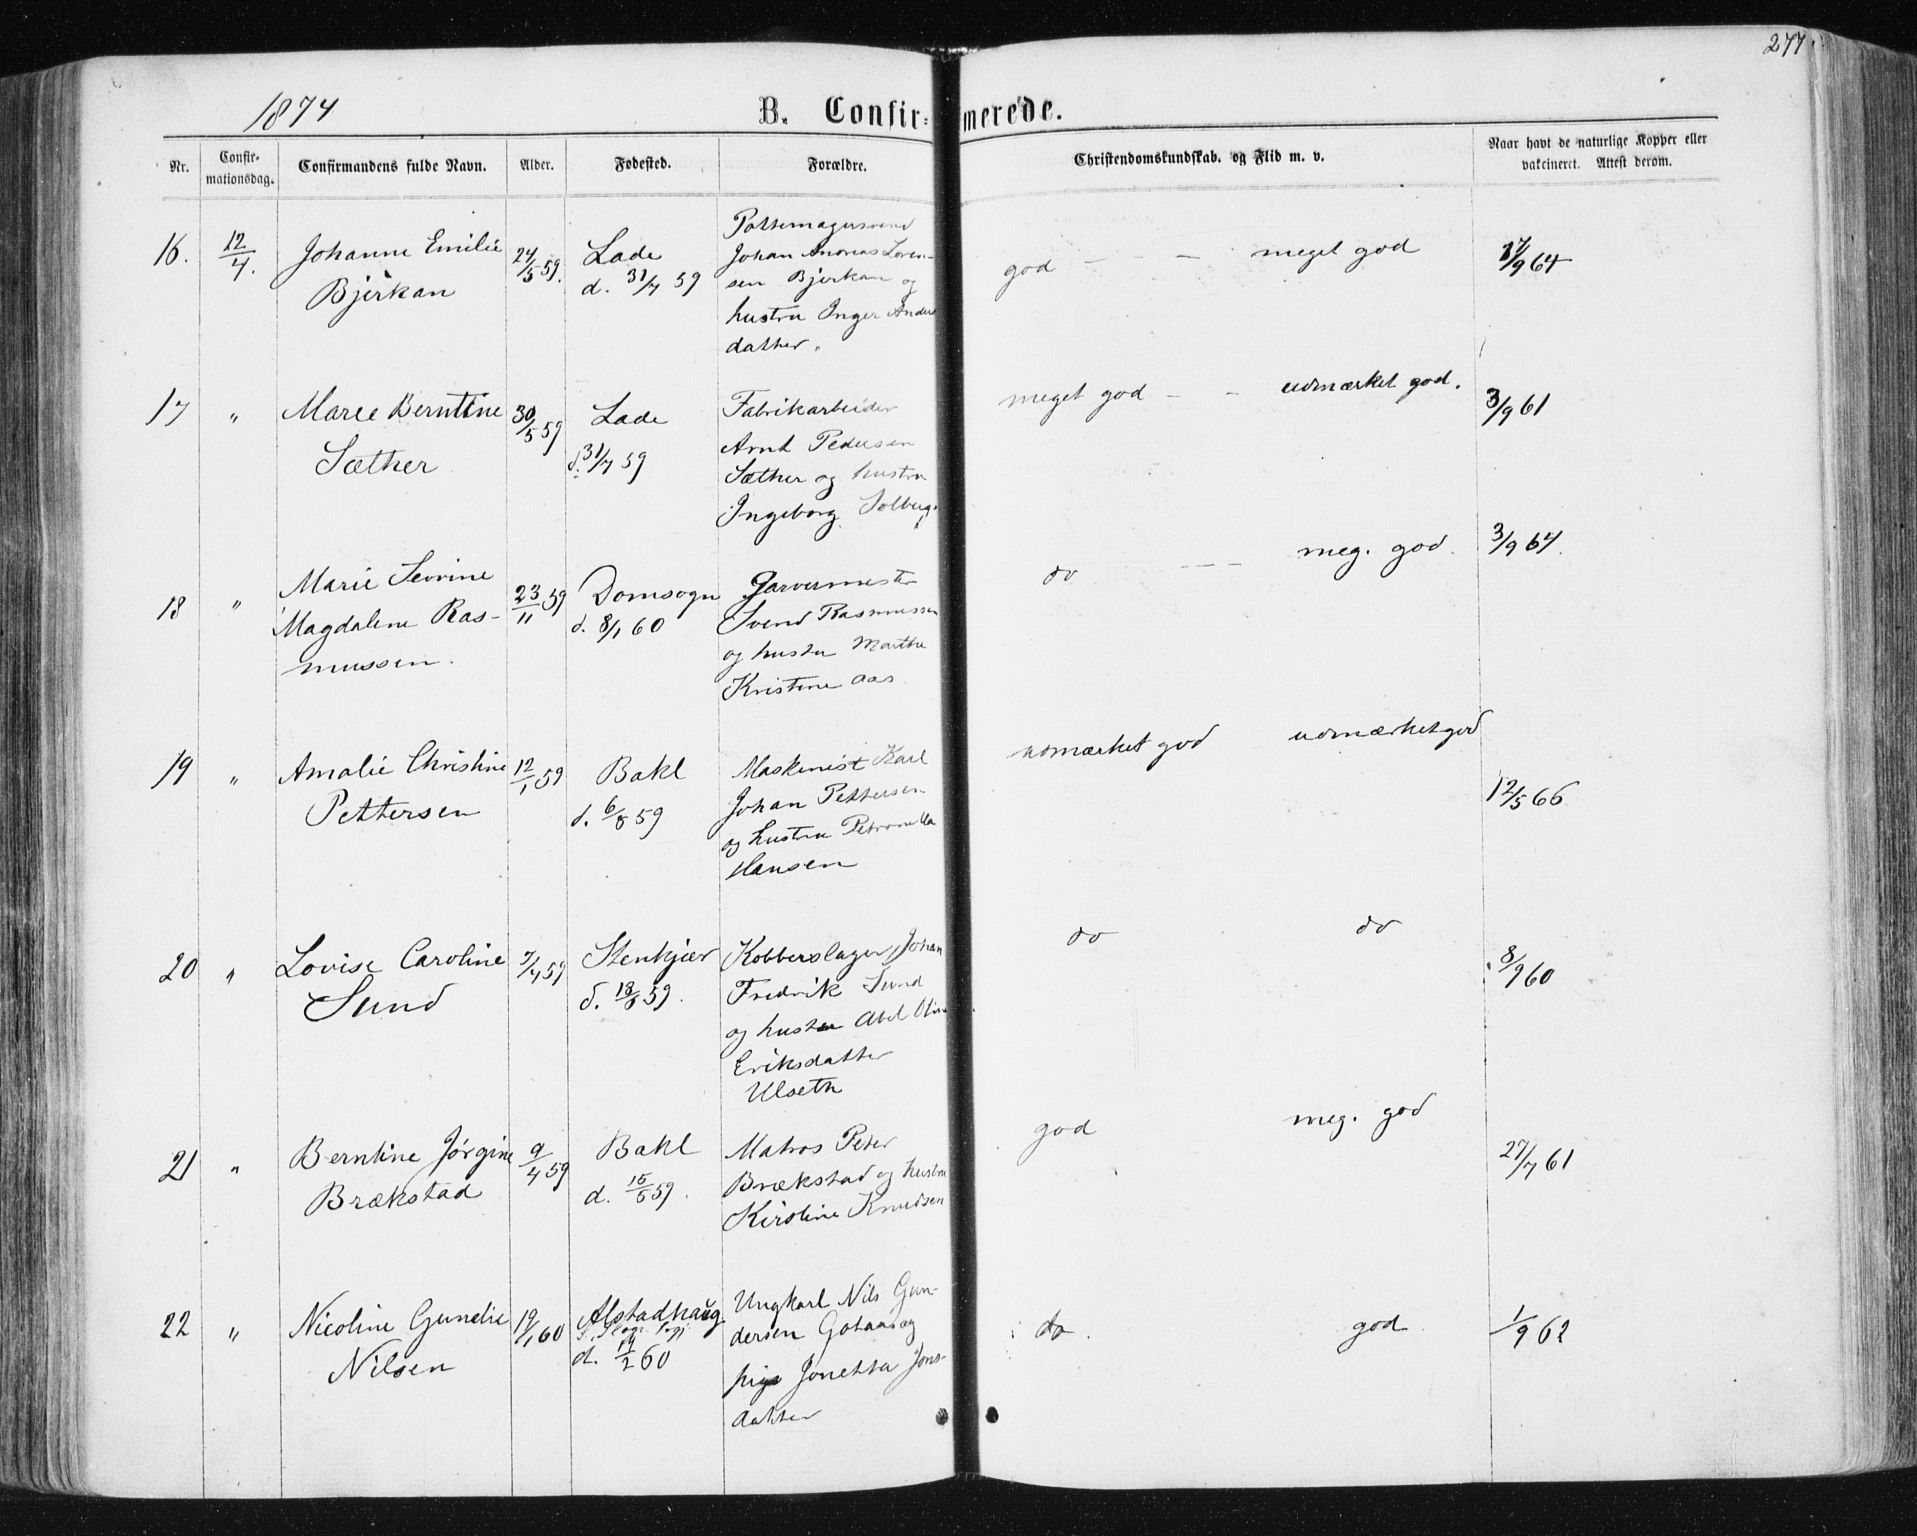 277.
1874
B. Confir-merede.
Nr.
Confir-
mationsdag.
Confirmandens fulde Navn.
Alder.
Fødested.
Forældre.
Christendomskundskab. og Flid m. v.
Naar havt de naturlige Kopper eller
vakcineret. Attest derom.
16. 12/4. Johanne Emilie 24/5 59. Lade
Bjerkan d. 31/7 59
Pottemagersvend
Johan Andreas Loren-
sen Bjerkan og
hustru Inger Anders
datter.
god - - - meget god 17/9 64
17 " Marie Berntine 30/5 59 Lade
Sæther d. 31/7 59
Fabrikarbeider
Arnt Pedersen
Sæther og hustru
Ingeborg Solberg.
meget god - - udmærket god. 3/9 61
18 " Marie Sevrine
Magdalene Ras-
mussen.
23/11 59 Domsogn
d. 8/1 60
Garvermester
Svend Rasmussen
og hustru Marthe
Kristine Aas
do - - - meg. god. 3/9 64.
19 " Amalie Christine 12/1 59 Bakl
Pettersen d. 6/8 59
Maskinist Karl
Johan Pettersen
og hustru Petronella
Hansen
udmærket god udmærket god
12/5 66
20 " Lovise Caroline 7/4 59 Stenkjær
Sund d. 18/8 59.
Kobberslager Johan
Fredrik Sund
og hustru Abel Oline
Eriksdatter
Ulseth
do do
8/9 60
21 " Berntine Jørgine 9/4 59 Bakl
Brækstad d. 15/5 59.
Matros Peter
Brækstad og hustru
Kirstine Knudsen
god meg. god
27/7 61
22 " Nicoline Gunelie 19/1 60 Alstadhaug
Nilsen
d. 19/2 60
Ungkarl Nils Gun-
dersen og
pige Jonetta Jons-
datter
do. god 1/9 62